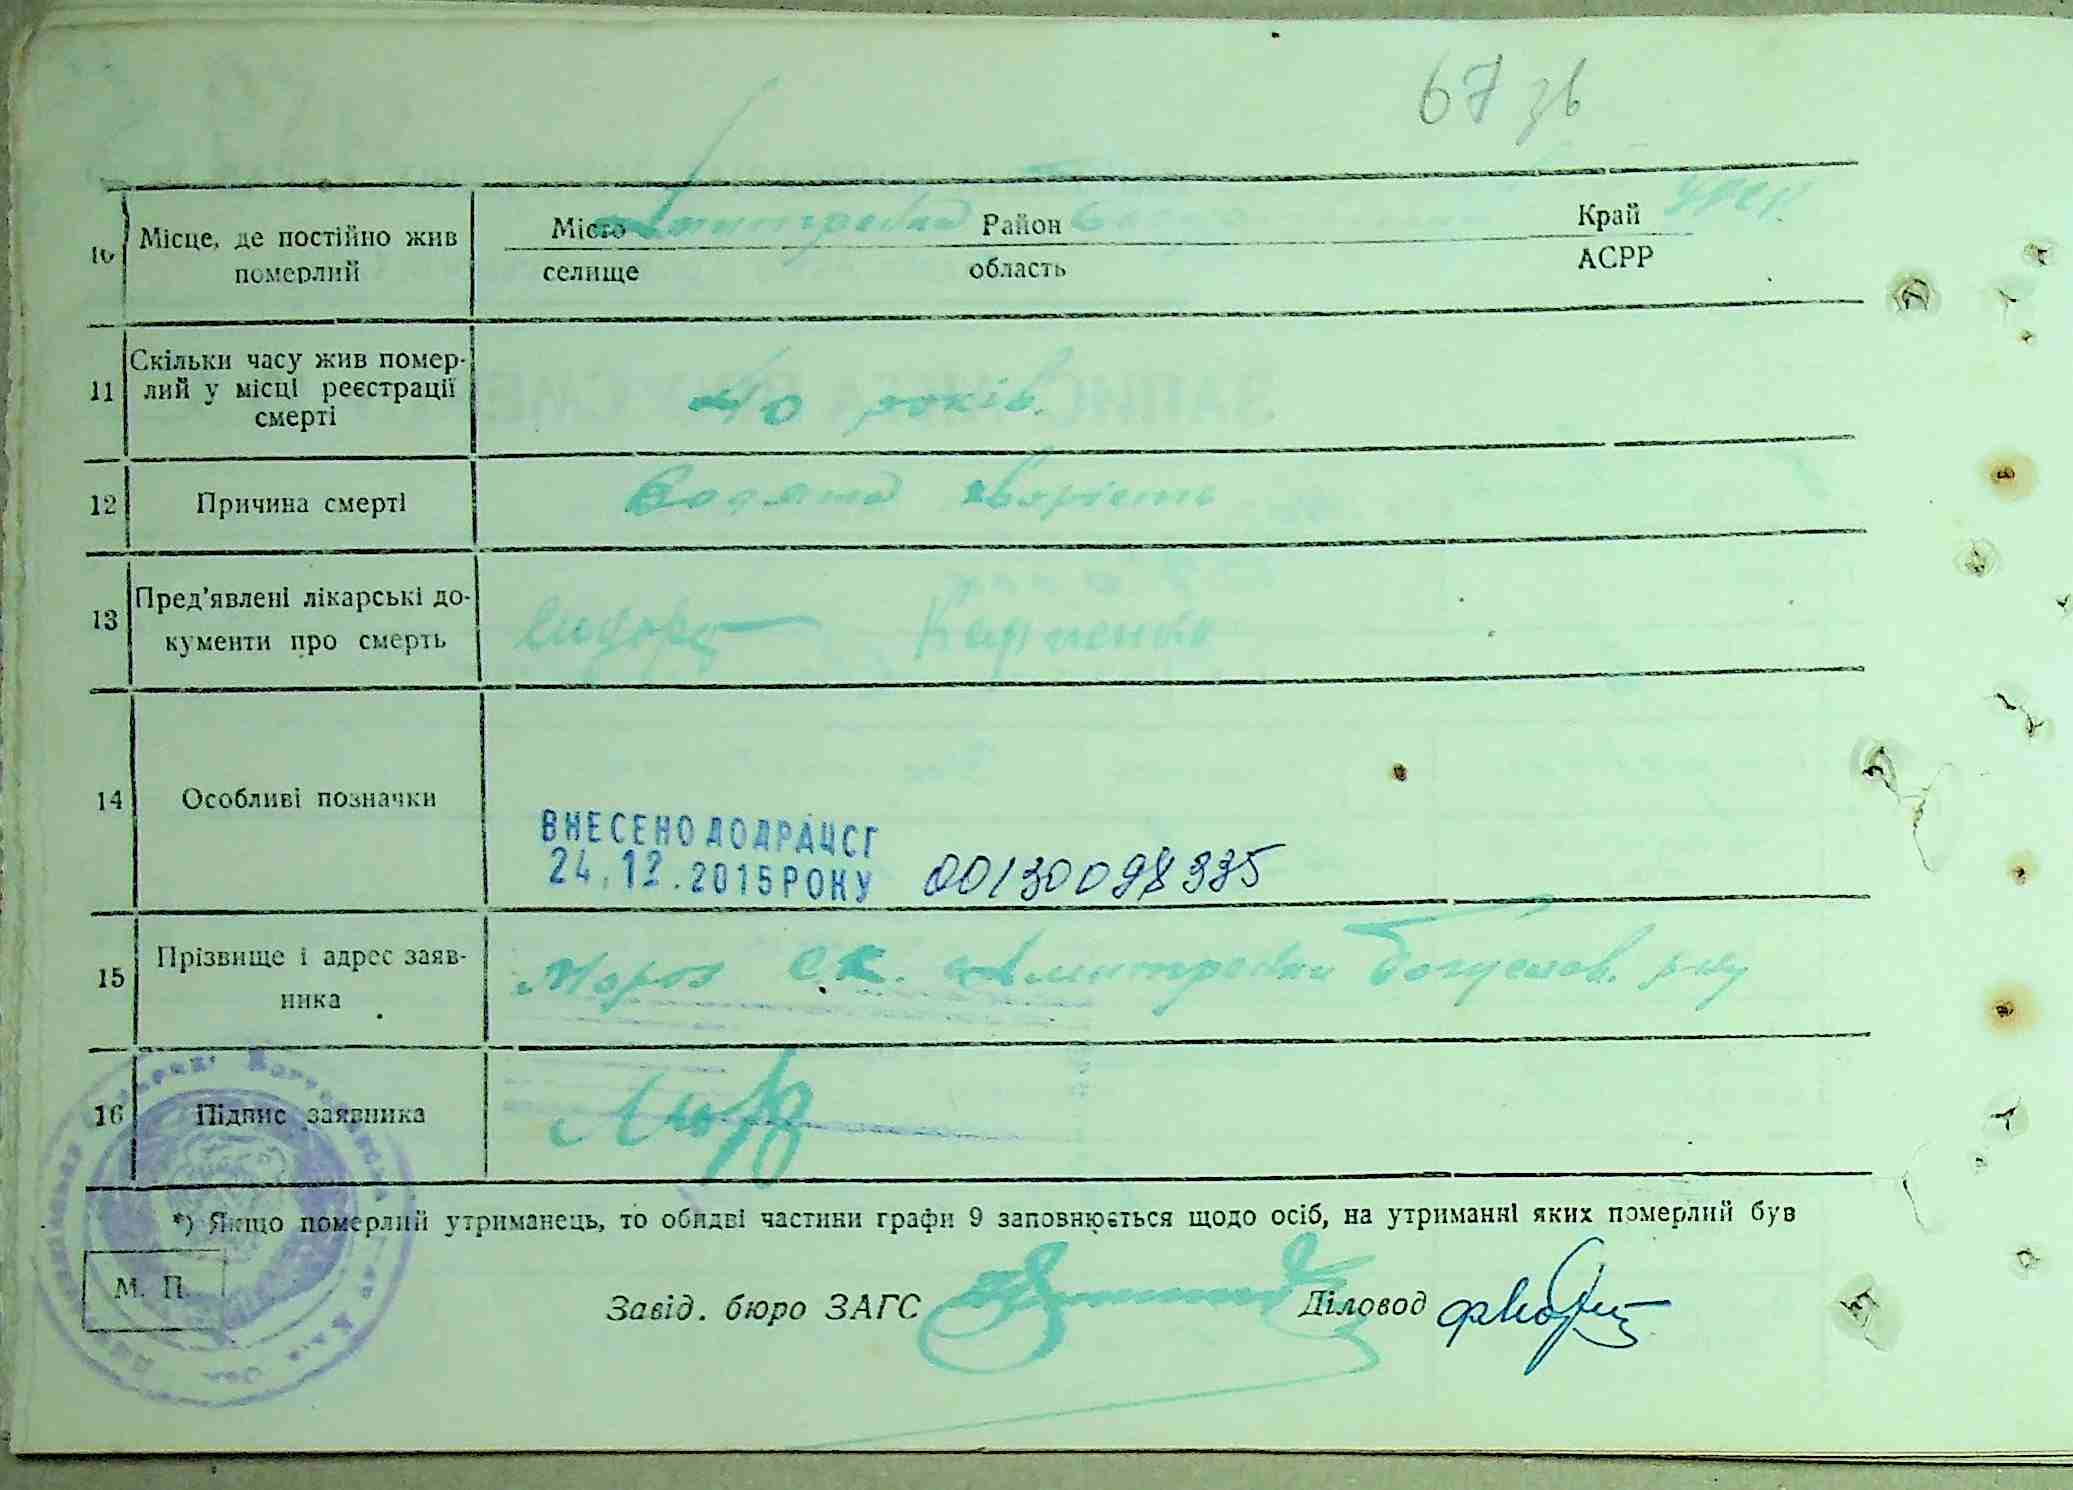 67 зв
10 Місце, де постійно жив померлий
Місто Дмитровка Район Край УРСР
селище область АСРР
11 Скільки часу жив помер-
лий у місці реєстрації
смерті
40 років.
12 Причина смерті
13 Пред'явлені лікарські до-
кументи про смерть
Карпенко
14 Особливі позначки
ВНЕСЕНО ДО ДРАЦСГ
24.12.2015 РОКУ 00130098335
15 Прізвище і адрес заяв-
ника
Мороз С.К. Богуслов. р-ну
16 Підпис заявника
*) Якщо померлий утриманець, то обидві частини графи 9 заповнюється щодо осіб, на утриманні яких померлий був
М. П.
Завід. бюро ЗАГС Діловод